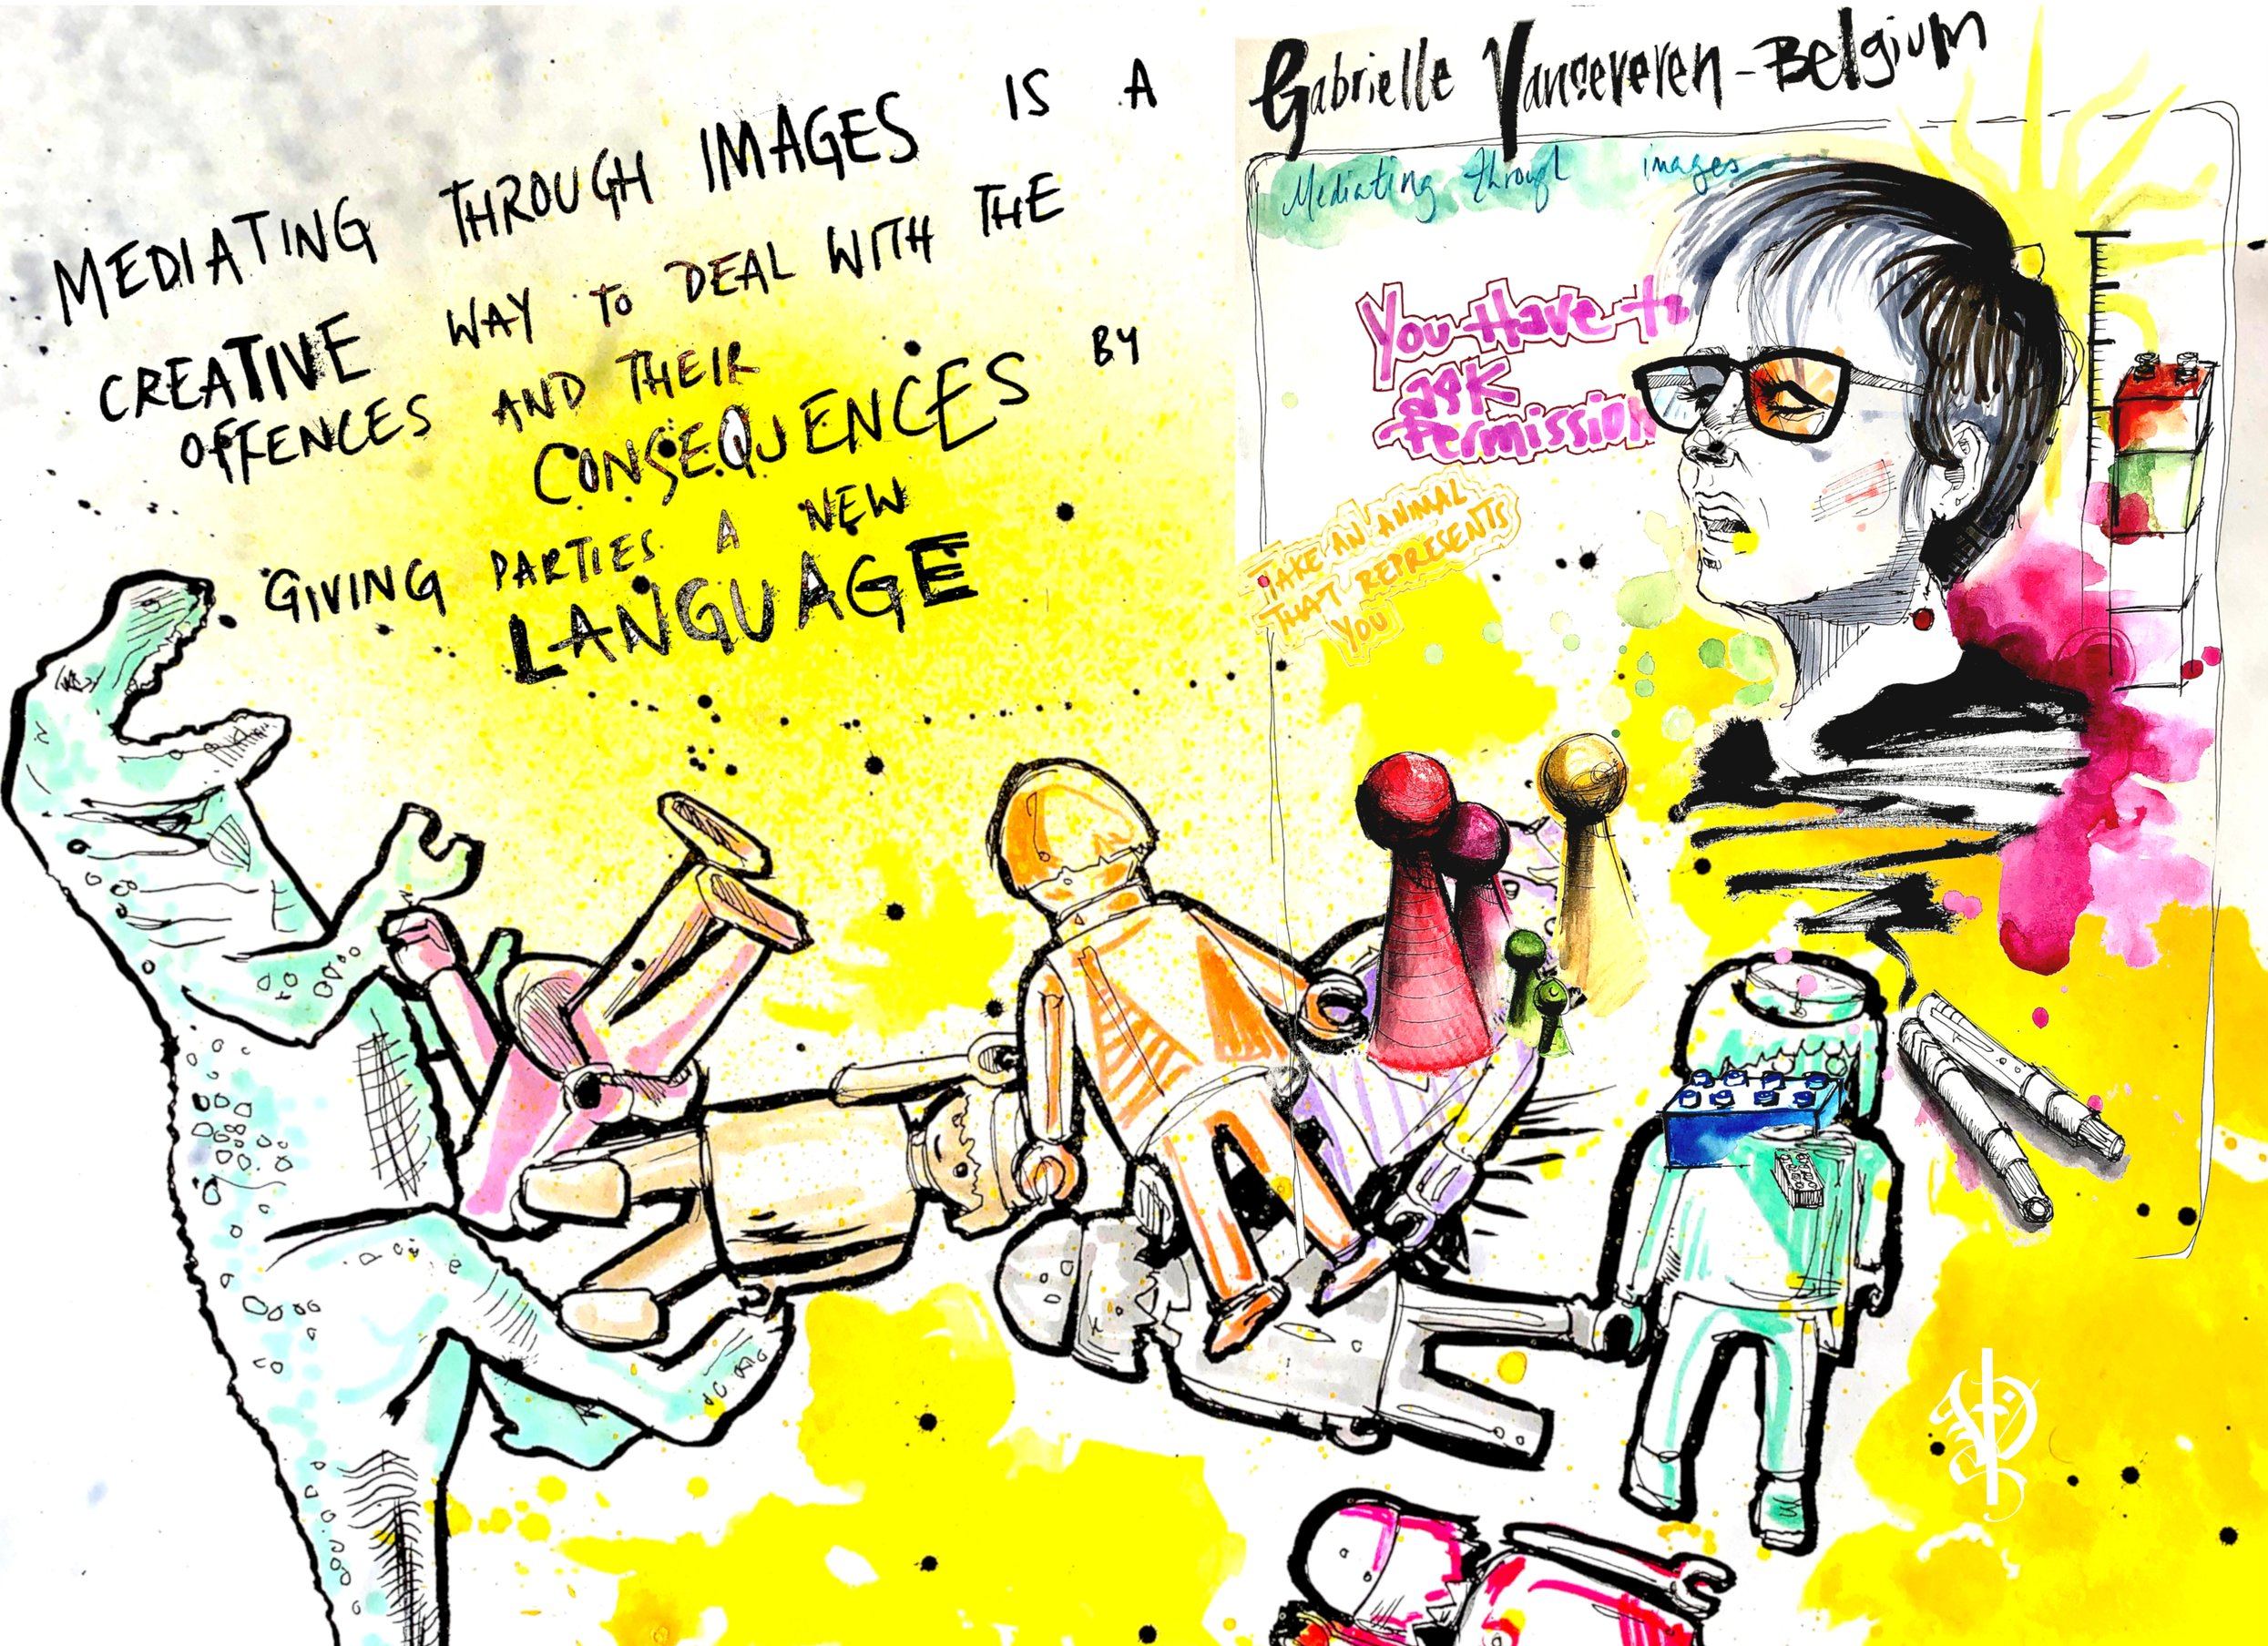 MEDIATING THROUGH IMAGES IS A
CREATIVE WAY TO DEAL WITH THE
OFFENCES AND THEIR
CONSEQUENCES BY
GIVING PARTIES A NEW
LANGUAGE
Gabrielle Vansevere​n - Belgium
Mediating through images
You Have to
ask
Permission
TAKE AN ANIMAL
THAT REPRESENTS
YOU